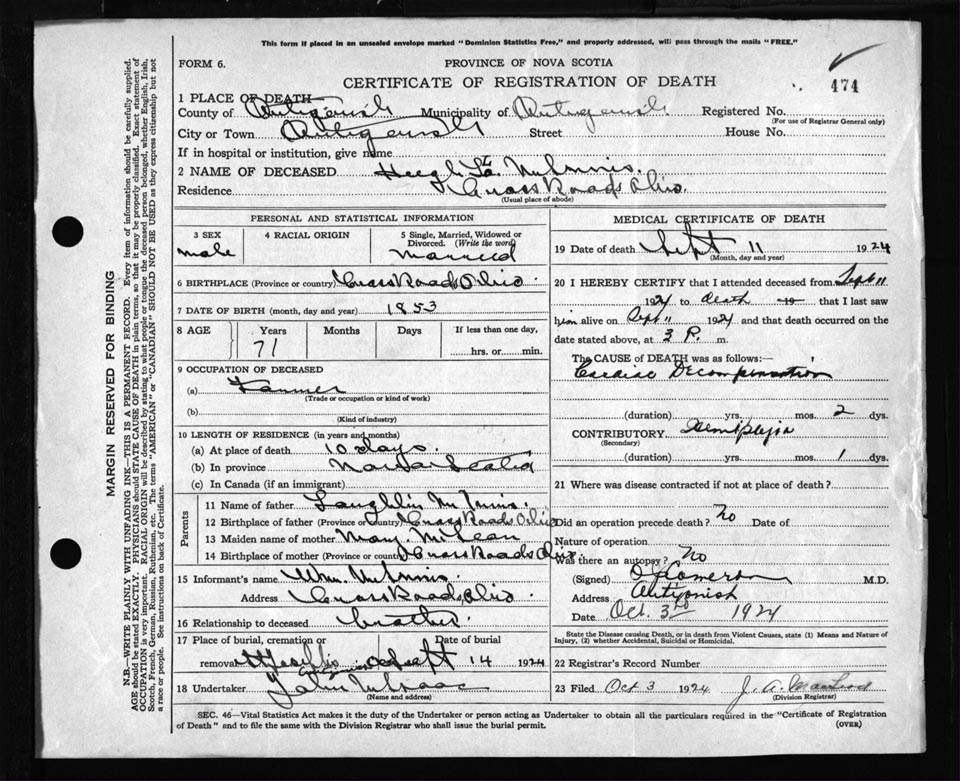 This form if placed in an unsealed envelope marked "Dominion Statistics Free," and properly addressed, will pass through the mails "FREE."
FORM 6.
PROVINCE OF NOVA SCOTIA
CERTIFICATE OF REGISTRATION OF DEATH
474
1 PLACE OF DEATH
County of Antigonish Municipality of Antigonish Registered No.
(For use of Registrar General only)
City or Town Antigonish Street House No.
If in hospital or institution, give name
2 NAME OF DECEASED Hugh McInnis.
Residence Cross Roads Ohio.
(Usual place of abode)
PERSONAL AND STATISTICAL INFORMATION
3 SEX
male
4 RACIAL ORIGIN
5 Single, Married, Widowed or Divorced. (Write the word)
Married
6 BIRTHPLACE (Province or country) Cross Roads Ohio
7 DATE OF BIRTH (month, day and year) 1853
8 AGE Years Months Days If less than one day,
71 hrs. or min.
9 OCCUPATION OF DECEASED
(a) Farmer
(Trade or occupation or kind of work)
(b)
(Kind of industry)
10 LENGTH OF RESIDENCE (in years and months)
(a) At place of death 10 days.
(b) In province Nova Scotia
(c) In Canada (if an immigrant)
Parents
11 Name of father Laughlin McInnis.
12 Birthplace of father (Province or country) Cross Roads Ohio
13 Maiden name of mother Mary McLean
14 Birthplace of mother (Province or country) Cross Roads Ohio.
15 Informant's name Wm. McInnis.
Address Cross Roads Ohio
16 Relationship to deceased brother.
17 Place of burial, cremation or removal St Josephs Date of burial Sept 14 1924
18 Undertaker John McIsaac
(Name and address)
MEDICAL CERTIFICATE OF DEATH
19 Date of death Sept 11 1924
(Month, day and year)
20 I HEREBY CERTIFY that I attended deceased from Sept 11
1924 to death 19 that I last saw
him alive on Sept 11 1924 and that death occurred on the
date stated above, at 3 P. m.
The CAUSE of DEATH was as follows:—
Cardiac Decompensation
(duration) yrs. mos. 2 dys.
CONTRIBUTORY Hemiplegia
(Secondary)
(duration) yrs. mos. 1 dys.
21 Where was disease contracted if not at place of death?
Did an operation precede death? No Date of
Nature of operation
Was there an autopsy? No
(Signed) Cameron M.D.
Address Antigonish
Date Oct. 3rd 1924
State the Disease causing Death, or in death from Violent Causes, state (1) Means and Nature of Injury, (2) whether Accidental, Suicidal or Homicidal.
22 Registrar's Record Number
23 Filed Oct 3 1924 J. A.
(Division Registrar)
SEC. 46—Vital Statistics Act makes it the duty of the Undertaker or person acting as Undertaker to obtain all the particulars required in the "Certificate of Registration
of Death" and to file the same with the Division Registrar who shall issue the burial permit.
(OVER)
MARGIN RESERVED FOR BINDING
N.B.—WRITE PLAINLY WITH UNFADING INK—THIS IS A PERMANENT RECORD. Every item of information should be carefully supplied.
AGE should be stated EXACTLY. PHYSICIANS should STATE CAUSE OF DEATH in plain terms, so that it may be properly classified. Exact statement of
OCCUPATION is very important. RACIAL ORIGIN will be described by stating to what people or tongue the deceased person belonged, whether English, Irish,
Scotch, French, German, Russian, Ruthenian, etc. The terms "AMERICAN" or "CANADIAN" SHOULD NOT BE USED as they express citizenship but not
a race or people. See instructions on back of Certificate.